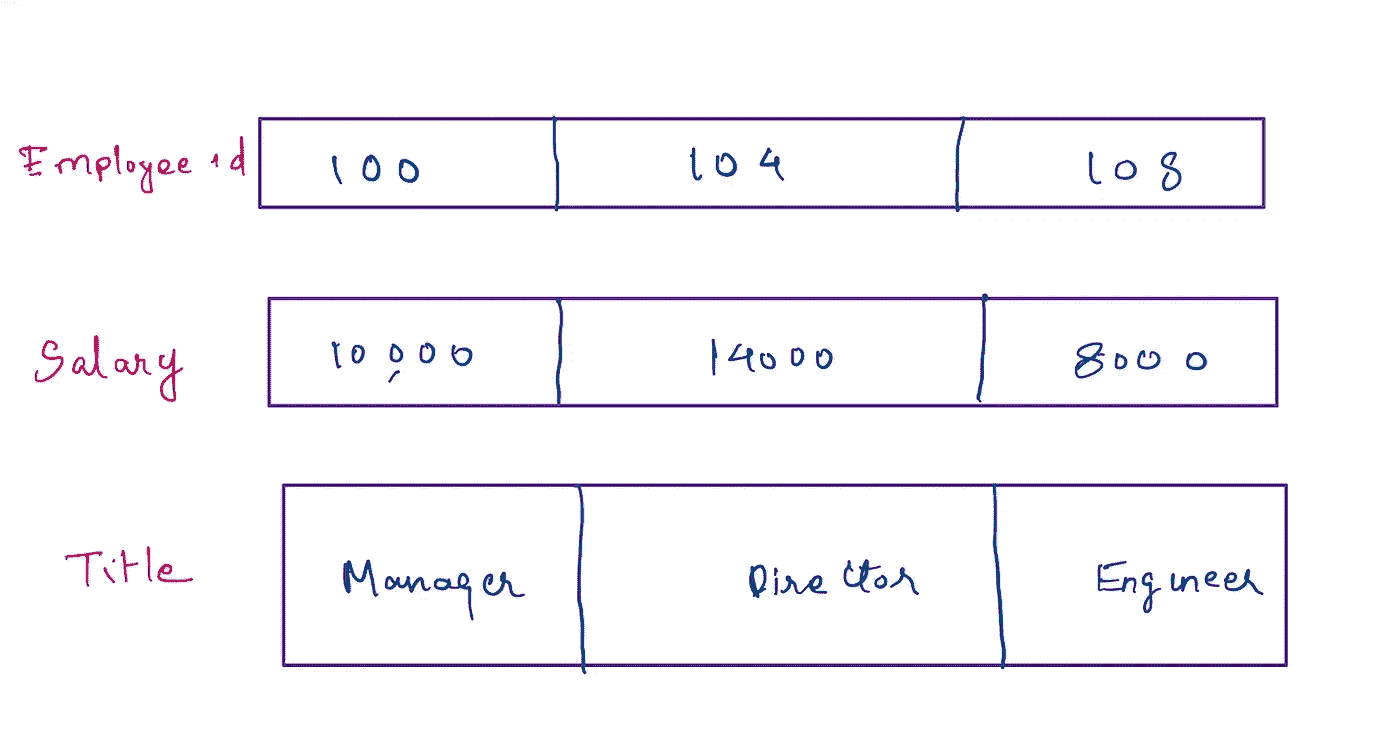 Employee id 100 104 108
Salary 10,000 14000 8000
Title Manager Director Engineer